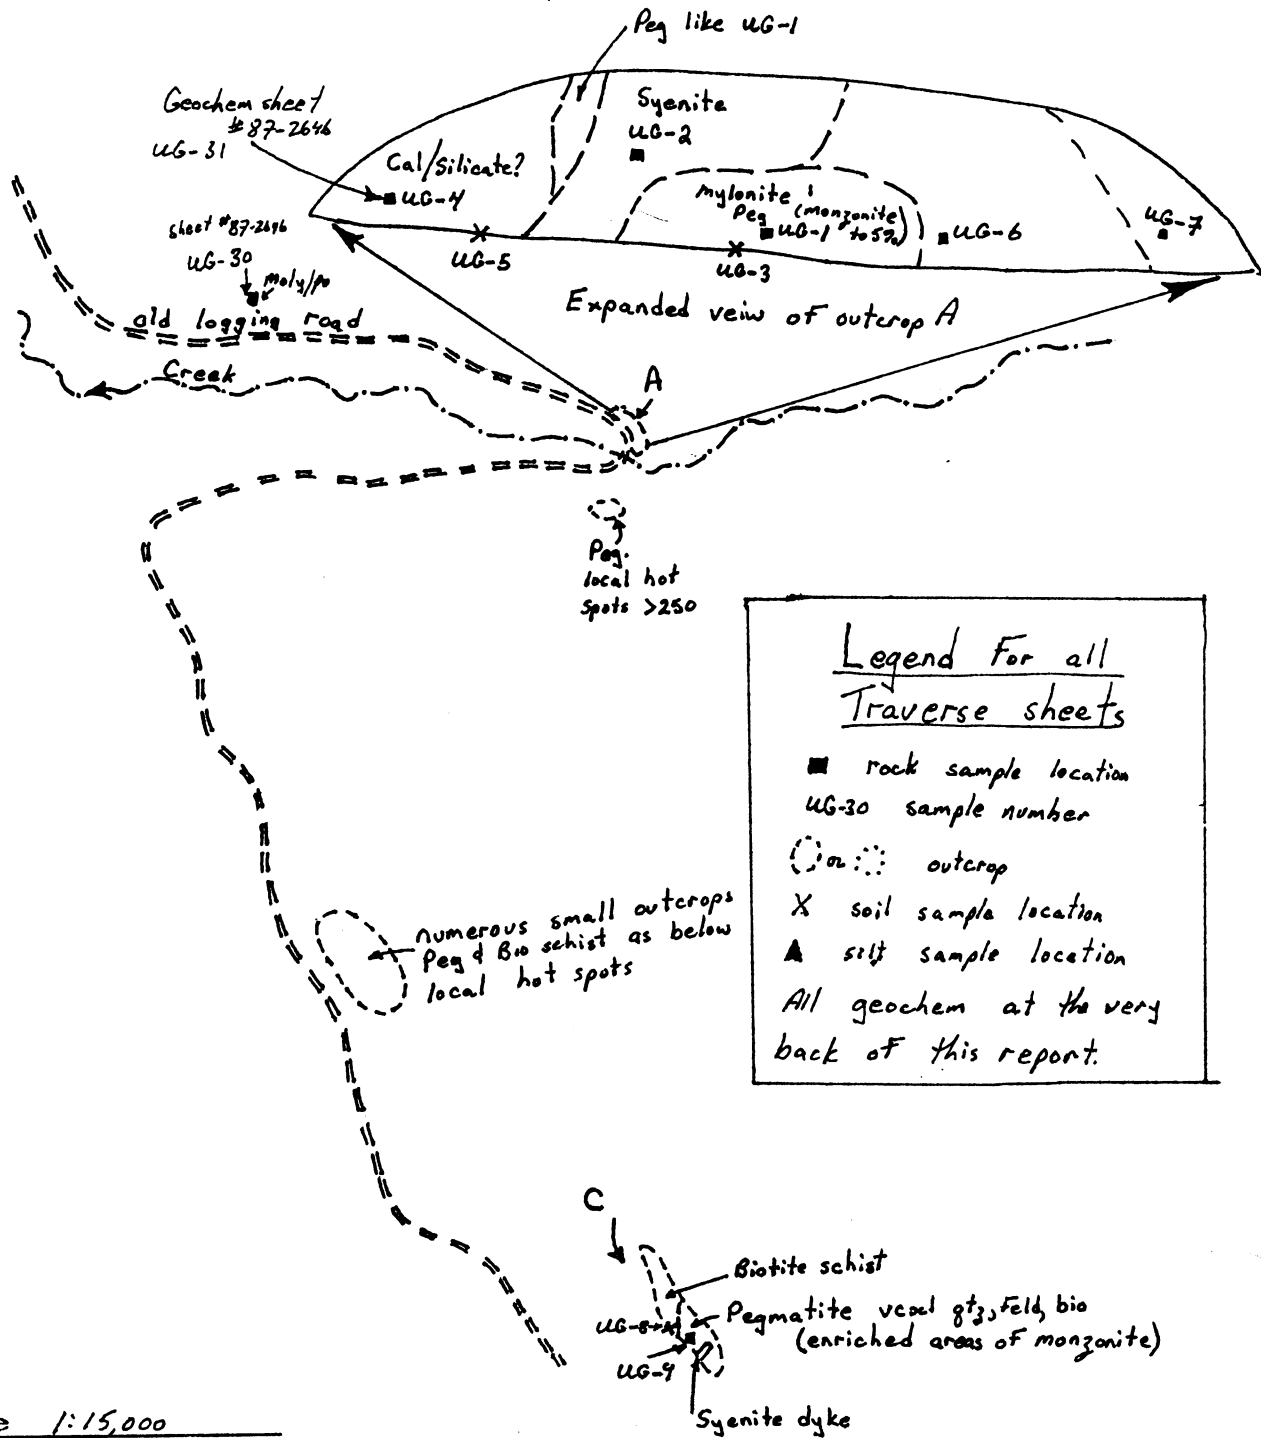 Peg like UG-1
Geochem sheet
#87-2646
UG-31
Syenite
UG-2
Cal/Silicate?
UG-4
Mylonite &
Peg (monzonite)
UG-1 to 5%
UG-6
UG-7
sheet #87-2646
UG-30
moly/po
UG-5
UG-3
Expanded veiw of outcrop A
old logging road
Creek
A
Peg.
local hot
spots >250
Legend For all
Traverse sheets
rock sample location
UG-30 sample number
or outcrop
X soil sample location
silt sample location
All geochem at the very
back of this report.
numerous small outcrops
Peg & Bio schist as below
local hot spots
C
Biotite schist
Pegmatite qtz, Feld, bio
(enriched areas of monzonite)
UG-8
UG-9
Syenite dyke
1:15,000